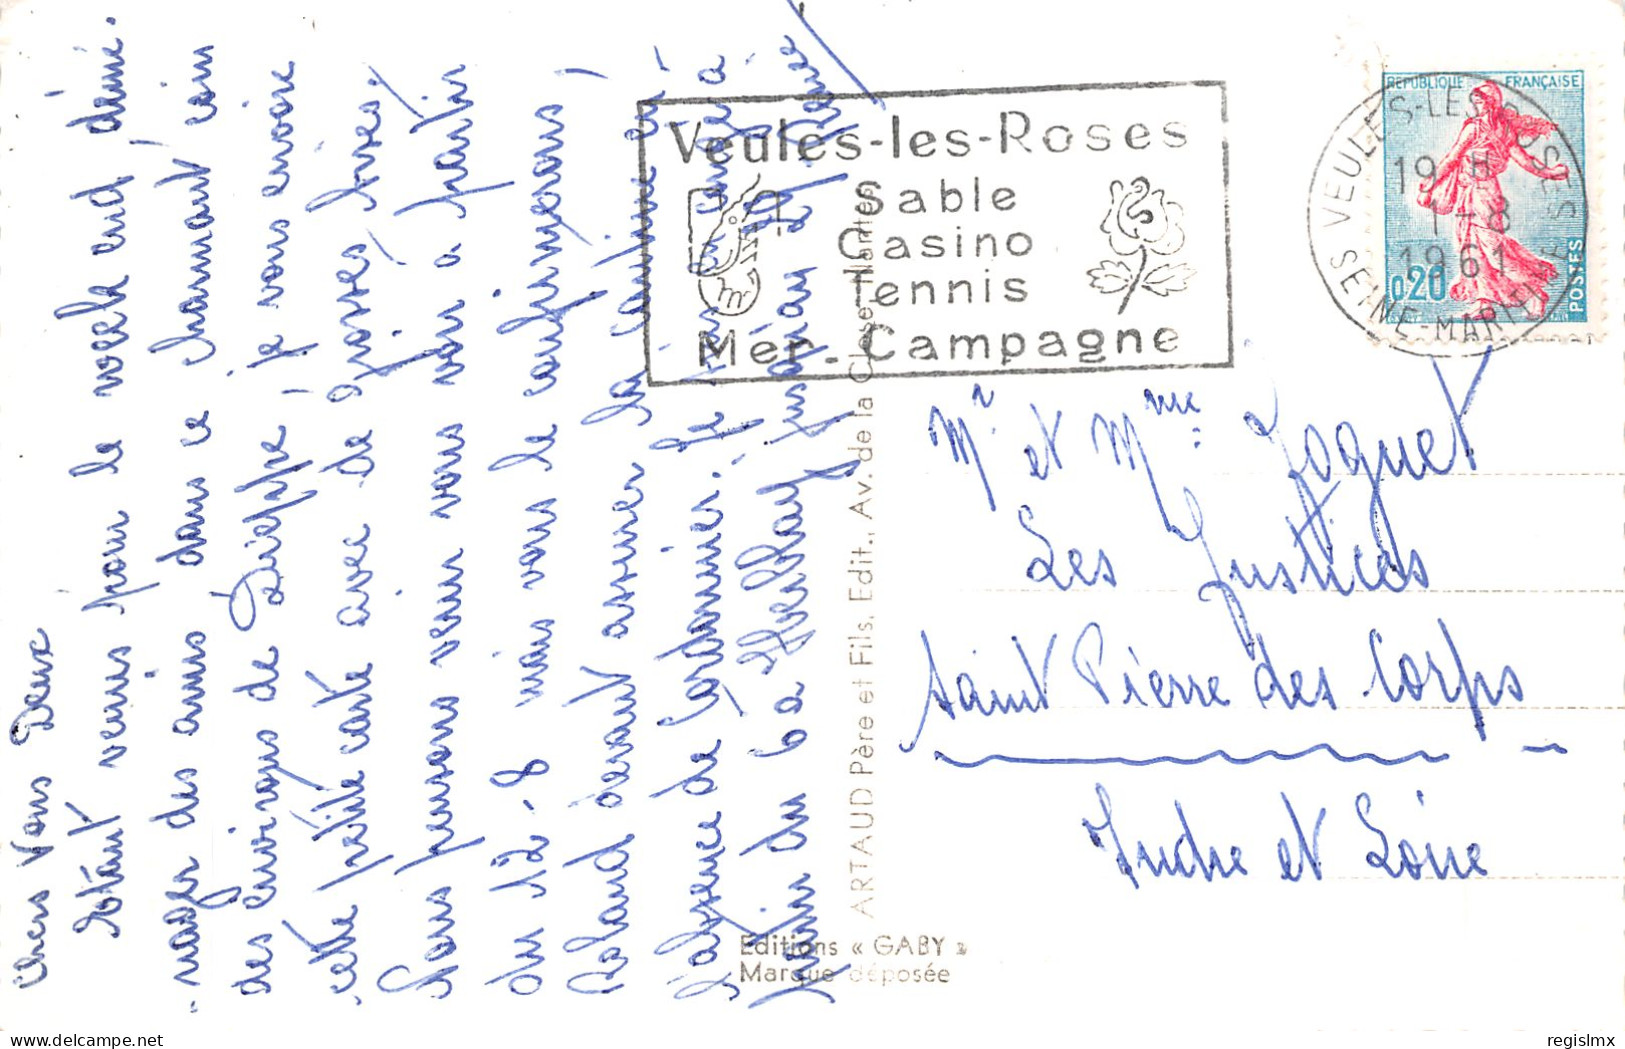 Chers Vous Deux
Etant venus pour le week end, démé-
-nager des amis dans ce charmant coin
des environs de Dieppe, je vous envoie
cette petite carte avec de grosses bises.
Nous pensons venir vous voir à partir
du 12-8 mais vous le confirmerons,
Roland devant assurer la cantine en
l'absence de Cordonnier. Je suis en congé à
partir du 6 à jusqu'au 29.
Editions « GABY »
Marque déposée
ARTAUD Père et Fils, Edit., Av. de la Close Nantes
Veules-les-Roses
Sable
Casino
Tennis
Mer - Campagne
RÉPUBLIQUE FRANÇAISE
0,20
POSTES
VEULES-LES-ROSES
19 H
1-8
1961
SEINE-MARITIME
Mr et Mme Joguet
Les Justices
Saint Pierre des Corps
Indre et Loire
regislmx